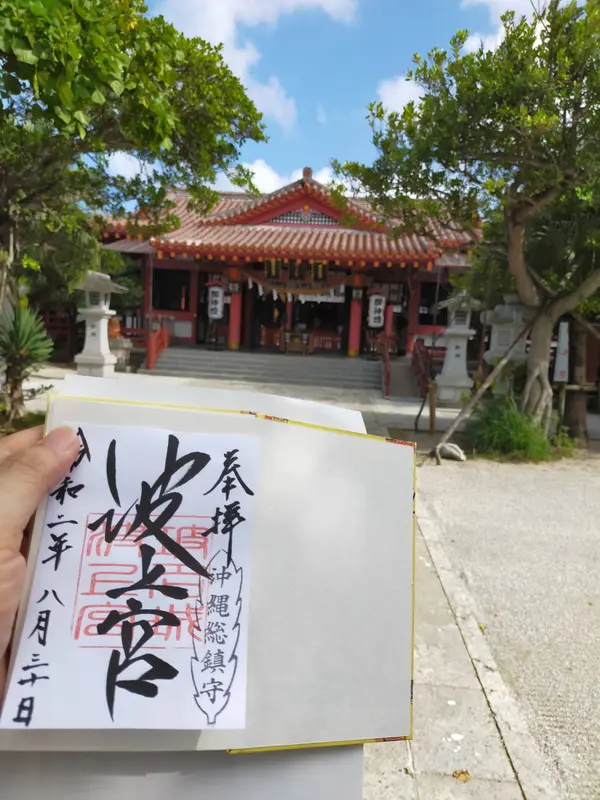 奉拝
沖縄総鎮守
波上宮
令和二年八月三十日